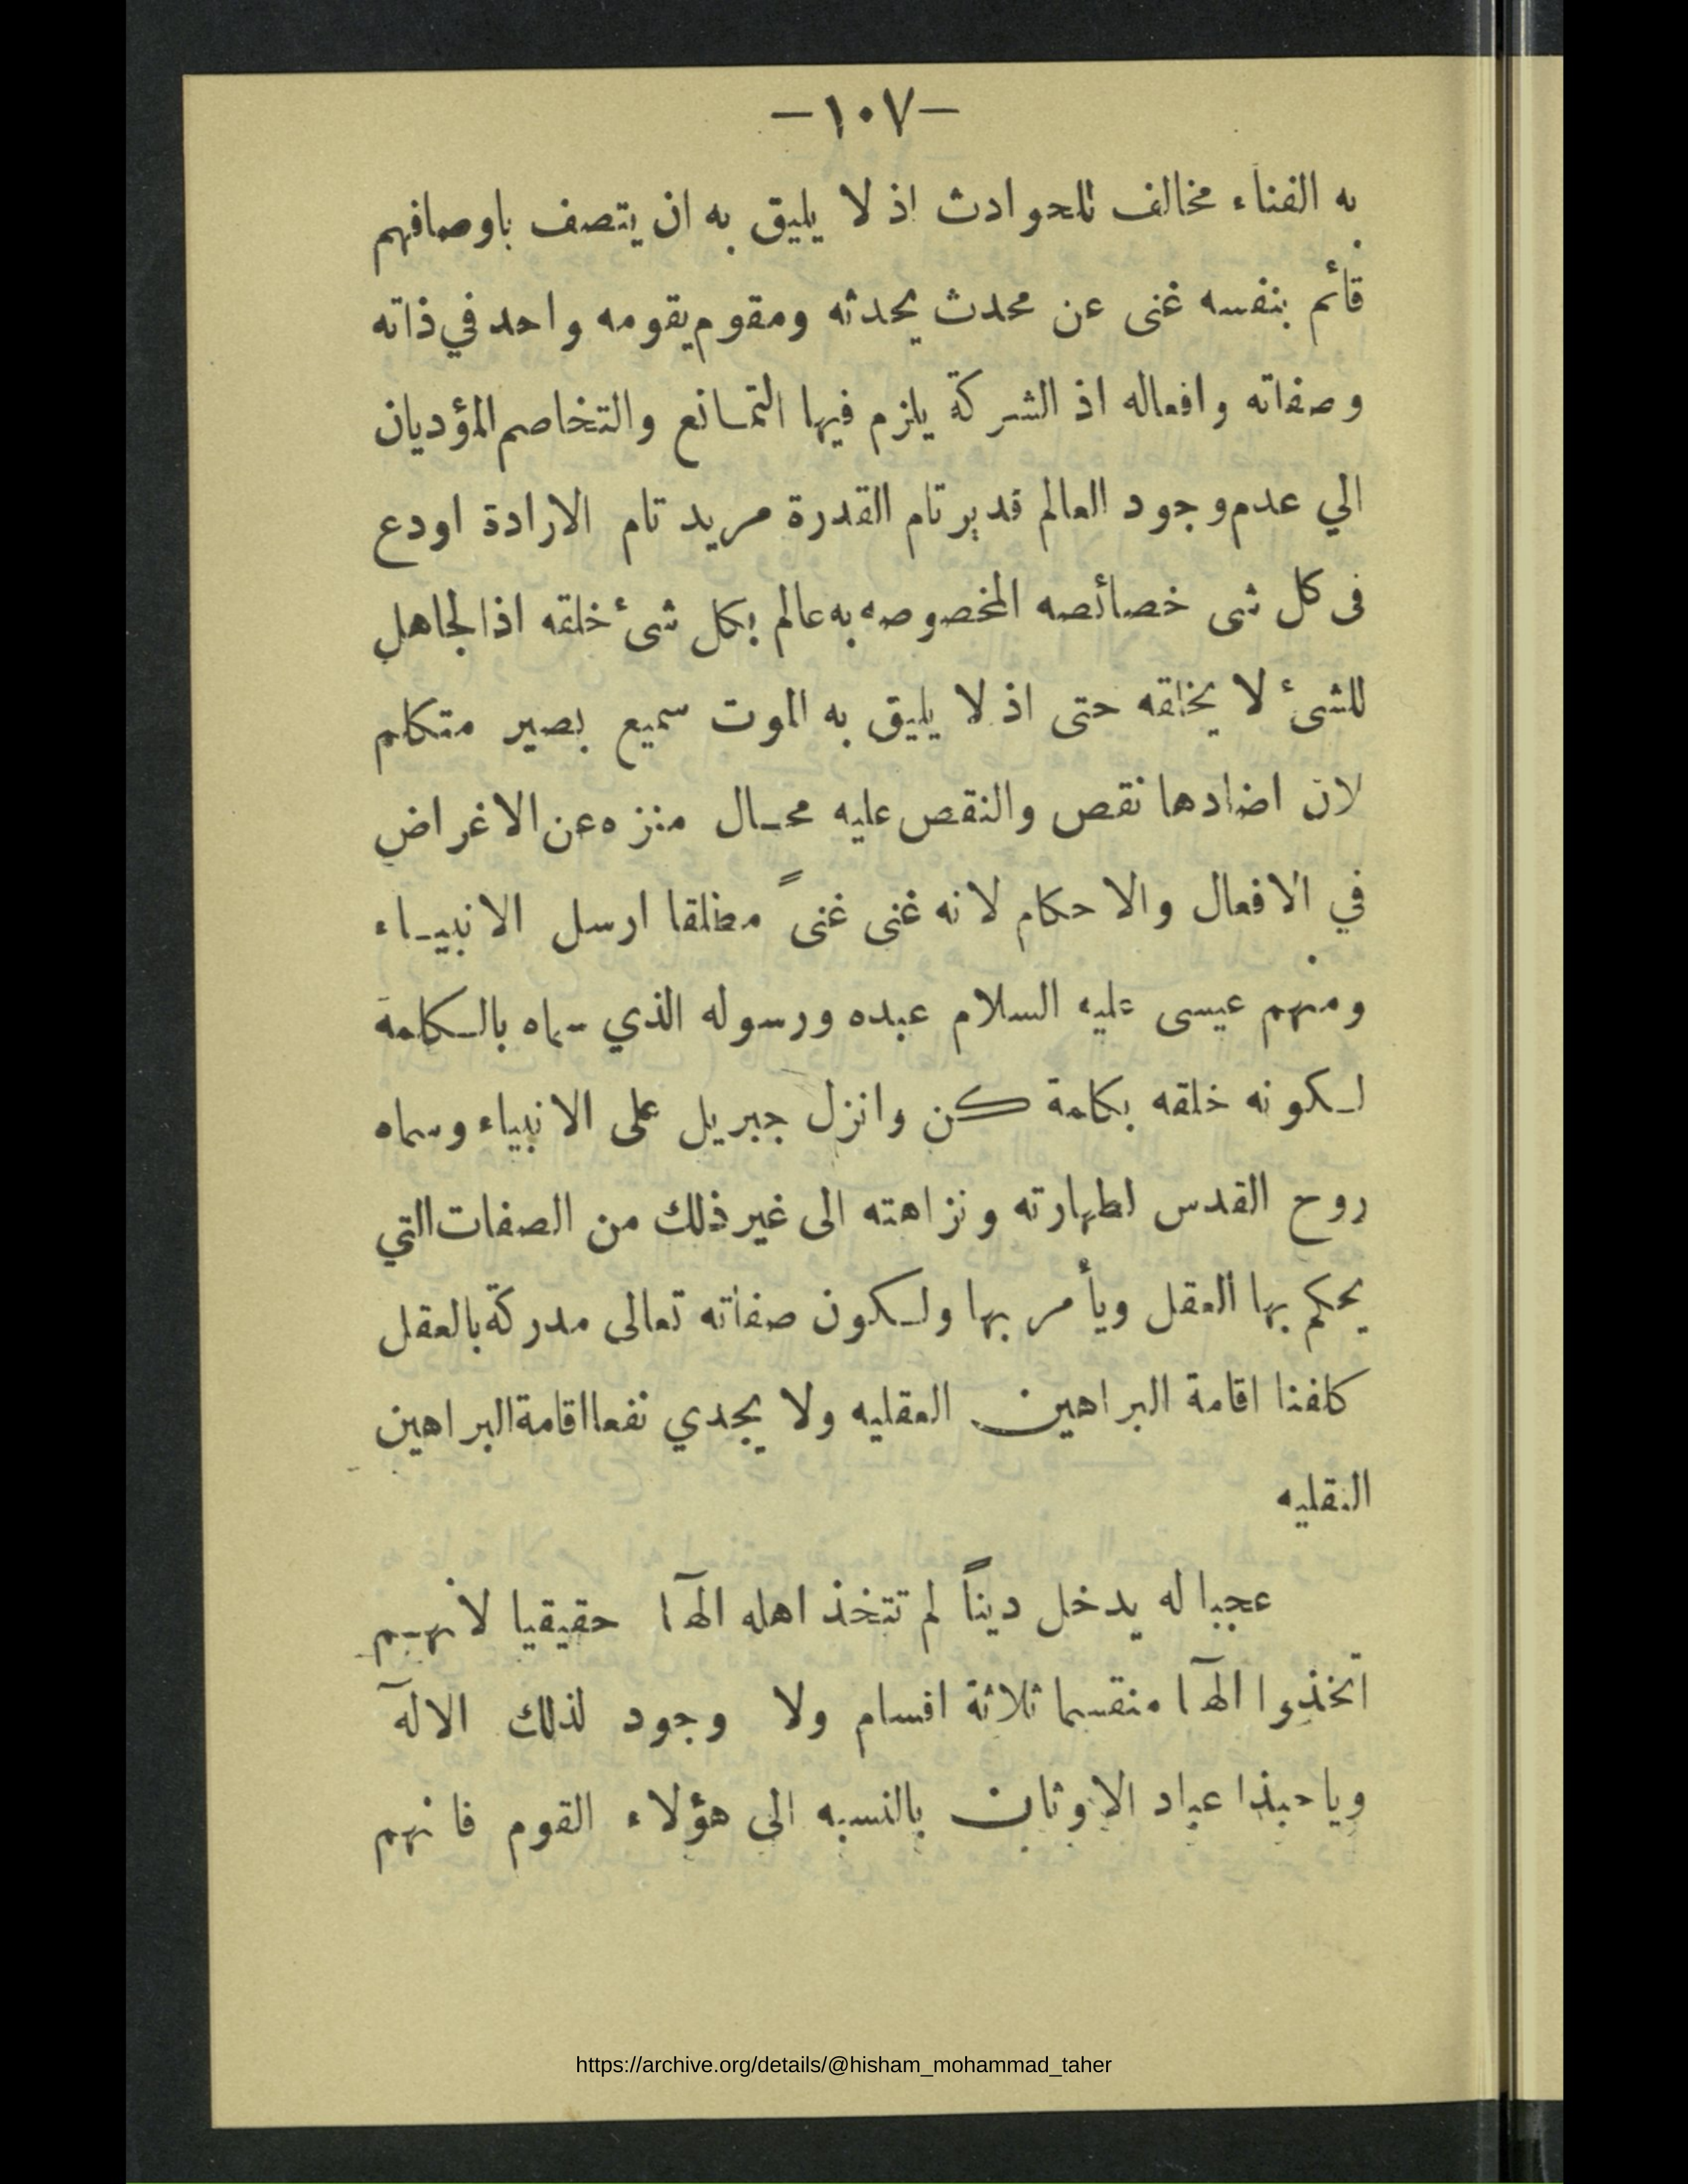 -١٠٧-
به الفناء مخالف للحوادث اذ لا يليق به ان يتصف باوصافهم
قائم بنفسه غنى عن محدث يحدثه ومقوم يقومه واحد في ذاته
وصفاته وافعاله اذ الشركة يلزم فيها التمانع والتخاصم المؤديان
الي عدم وجود العالم قدير تام القدرة مريد تام الارادة اودع
فى كل شى خصائصه المخصوصه به عالم بكل شئ خلقه اذا لجاهل
للشئ لا يخلقه حتى اذ لا يليق به الموت سميع بصير متكلم
لان اضدادها نقص والنقص عليه محال منزه عن الاغراض
في الافعال والاحكام لانه غنى غنىً مطلقا ارسل الانبياء
ومنهم عيسى عليه السلام عبده ورسوله الذي سماه بالكلمة
لكونه خلقه بكلمة كن وانزل جبريل على الانبياء وسماه
روح القدس لطهارته ونزاهته الى غير ذلك من الصفات التي
يحكم بها العقل ويأمر بها ولكون صفاته تعالى مدركة بالعقل
كلفنا اقامة البراهين العقليه ولا يجدي نفعا اقامة البراهين
النقليه
عجبا له يدخل ديناً لم تتخذ اهله الهآ ا حقيقيا لأنهم
اتخذوا الهآ ا منقسما ثلاثة اقسام ولا وجود لذلك الآله
وياحبذا عباد الاوثان بالنسبه الى هؤلاء القوم فانهم
https://archive.org/details/@hisham_mohammad_taher